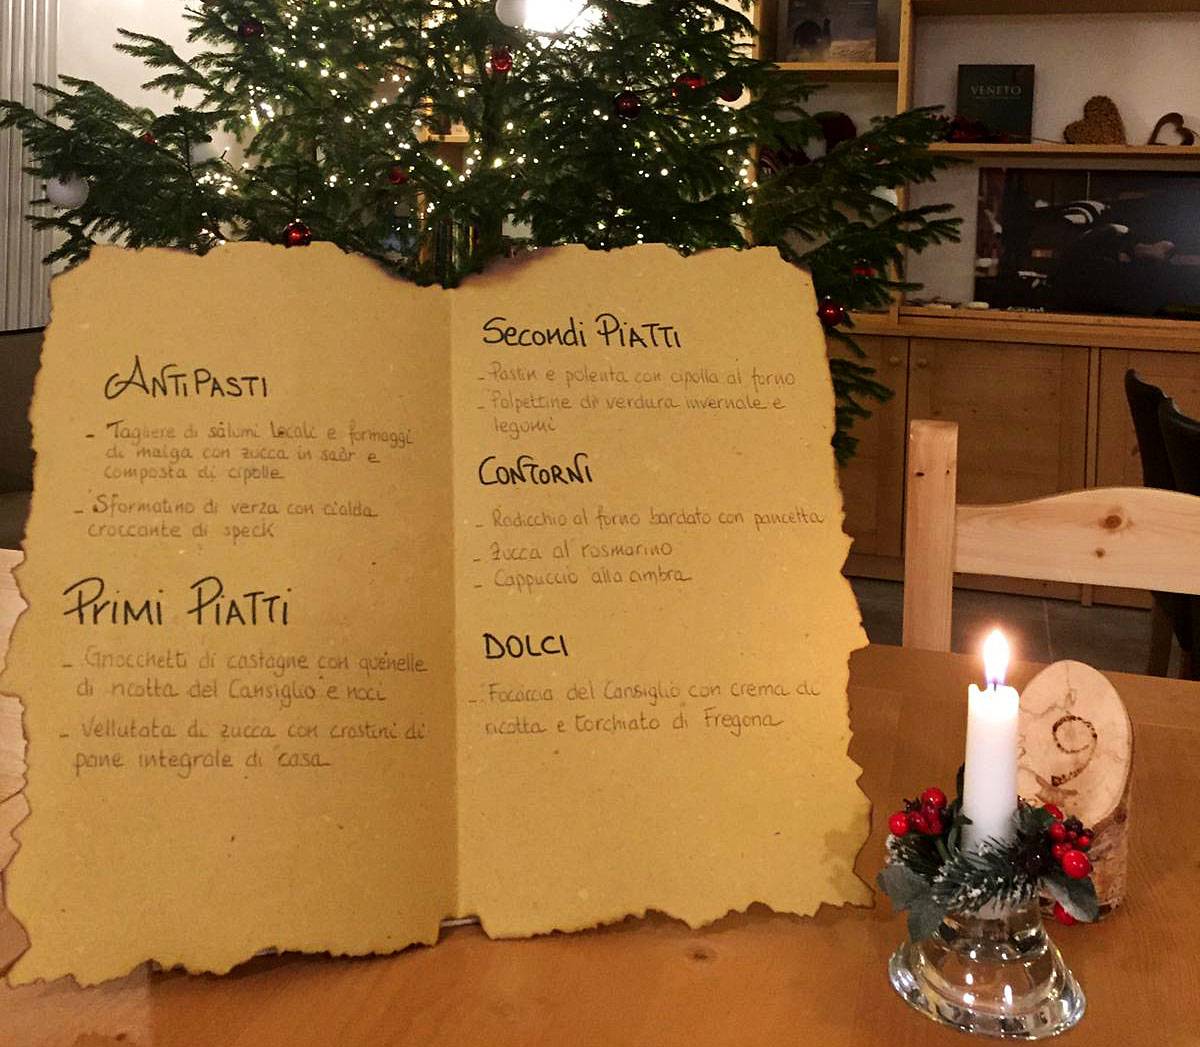 ANTIPASTI
- Tagliere di salumi locali e formaggi
di malga con zucca in saòr e
composta di cipolle
- Sformatino di verza con cialda
croccante di speck
PRIMI PIATTI
- Gnocchetti di castagne con quenelle
di ricotta del Cansiglio e noci
- Vellutata di zucca con crostini di
pane integrale di casa
Secondi PIATTI
- Pastin e polenta con cipolla al forno
- Polpettine di verdura invernale e
legumi
CONTORNI
- Radicchio al forno bardato con pancetta
- Zucca al rosmarino
- Cappuccio alla ambra
DOLCI
- Focaccia del Cansiglio con crema di
ricotta e Torchiato di Fregona
VENETO
9